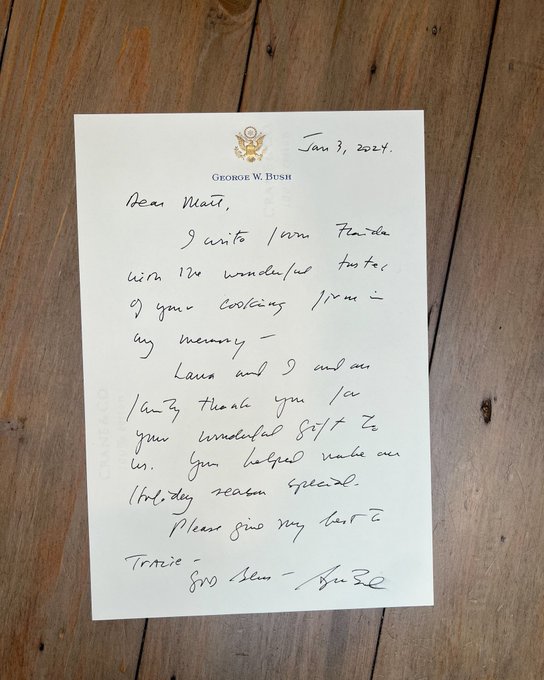 Jan 3, 2024.
GEORGE W. BUSH
Dear Matt,
I write from Florida
with the wonderful tastes
of your cooking firm in
my memory —
Laura and I and our
family thank you for
your wonderful gift to
us. You helped make our
Holiday season special.
Please give my best to
Tracie —
God Bless —